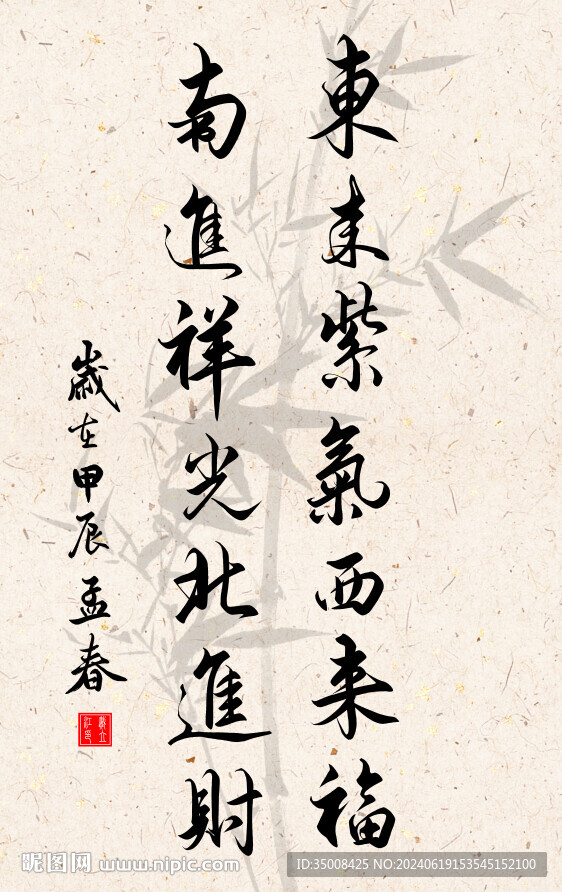 東来紫氣西来福
南進祥光北進財
歲在甲辰孟春
昵图网 www.nipic.com
ID:35008425 NO:20240619153545152100